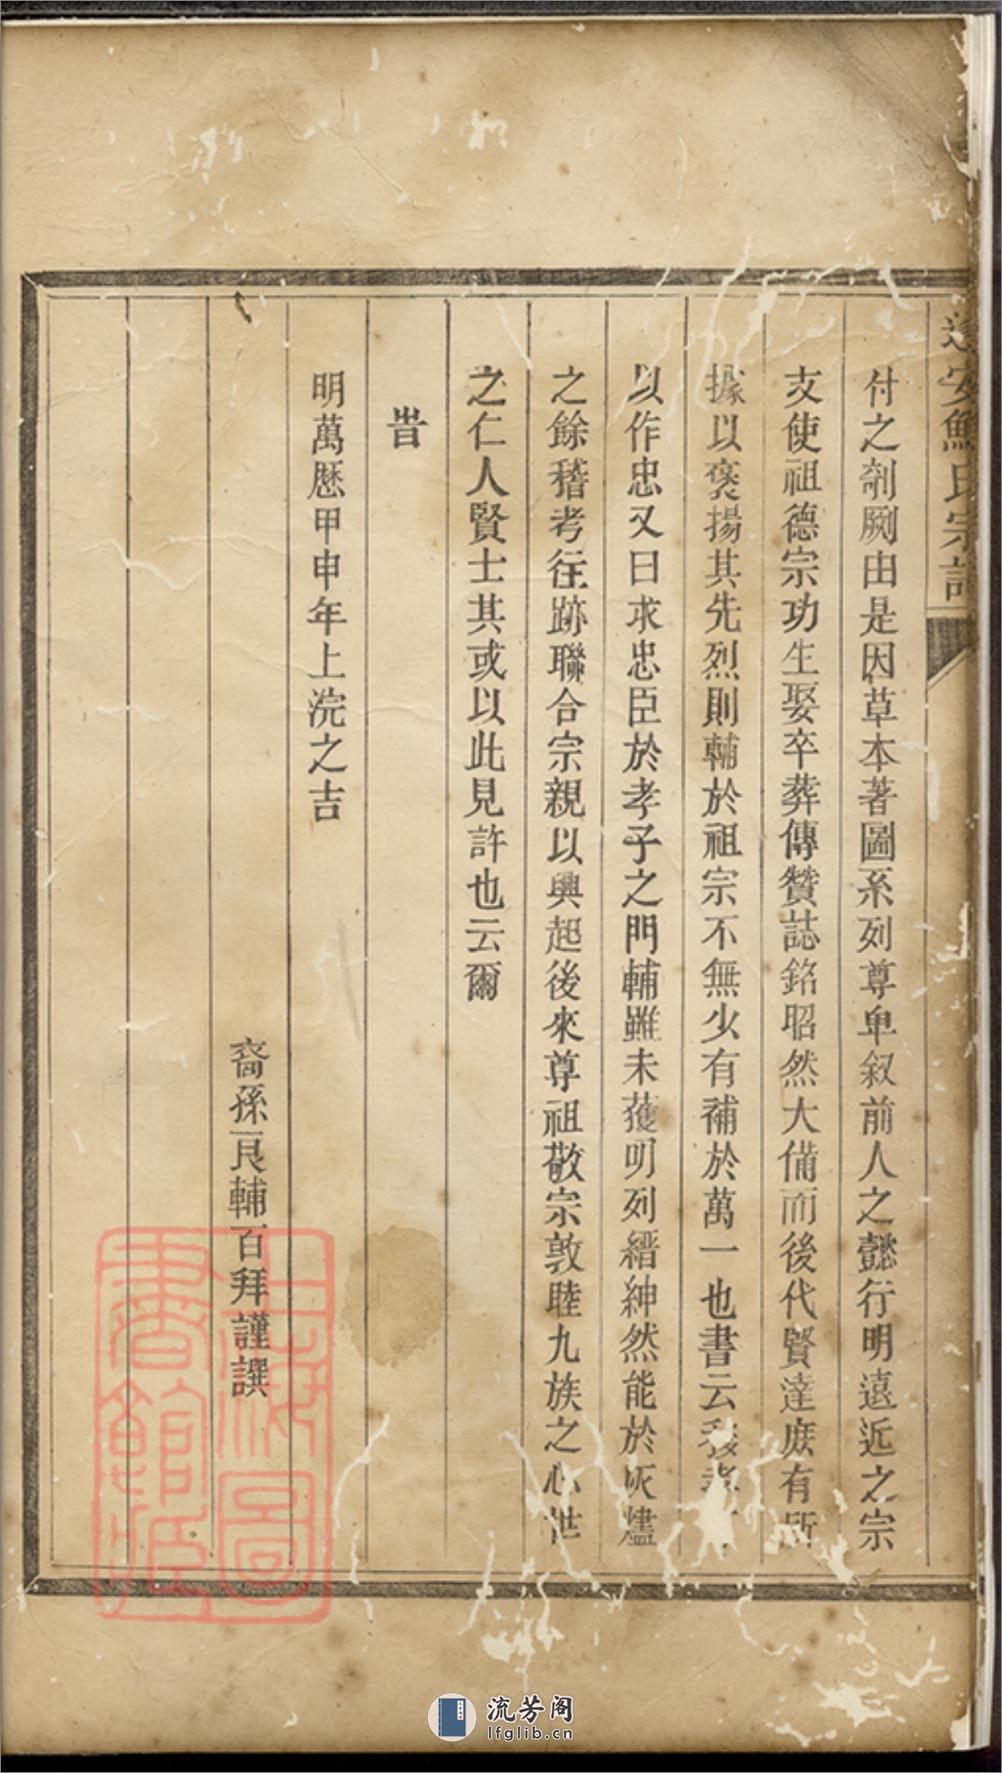 安鮑氏宗譜
付之剞劂由是因草本著圖系列尊卑叙前人之懿行明遠近之宗
支使祖德宗功生娶卒葬傳贊誌銘昭然大備而後代賢達庶有所
據以褒揚其先烈則輔於祖宗不無少有補於萬一也書云移孝
以作忠又曰求忠臣於孝子之門輔雖未獲叨列縉紳然能於灰燼
之餘稽考往跡聯合宗親以興起後來尊祖敬宗敦睦九族之心世
之仁人賢士其或以此見許也云爾
旹
明萬厯甲申年上浣之吉
裔孫良輔百拜謹譔
上海圖
書館藏
流芳阁
lfglib.cn